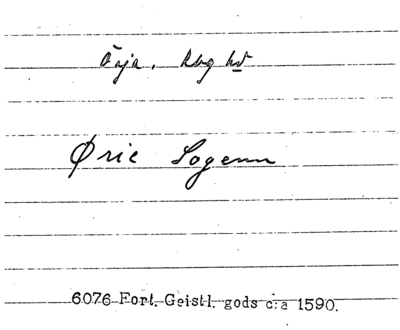 Örja, Rbg hd
Ørie Sogenn
6076 Fort. Geistl. gods c:a 1590.